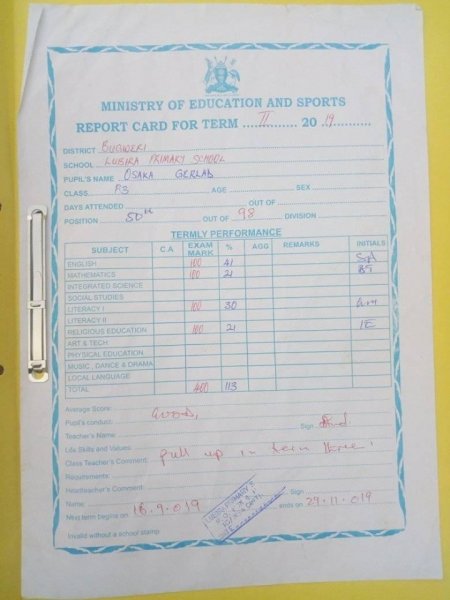 MINISTRY OF EDUCATION AND SPORTS
REPORT CARD FOR TERM ....II.... 20 .19..........
DISTRICT BUGWERI
SCHOOL LUBIRA PRIMARY SCHOOL
PUPIL'S NAME OSAKA GERLAD
CLASS P3 AGE SEX
DAYS ATTENDED OUT OF
POSITION 50th OUT OF 98 DIVISION
TERMLY PERFORMANCE
SUBJECT C.A EXAM MARK % AGG REMARKS INITIALS
ENGLISH 100 41
MATHEMATICS 100 21 BT
INTEGRATED SCIENCE
SOCIAL STUDIES
LITERACY I 100 30
LITERACY II
RELIGIOUS EDUCATION 100 21 IE
ART & TECH
PHYSICAL EDUCATION
MUSIC, DANCE & DRAMA
LOCAL LANGUAGE
TOTAL 400 113
Average Score:
Pupil's conduct: Good,
Teacher's Name: Sign
Life Skills and Values:
Class Teacher's Comment: Pull up in term three!
Requirements:
Headteacher's Comment:
Name: Sign
Next term begins on 16.9.019 ends on 29.11.019
Invalid without a school stamp.
LUBIRA PRIMARY S
DATE